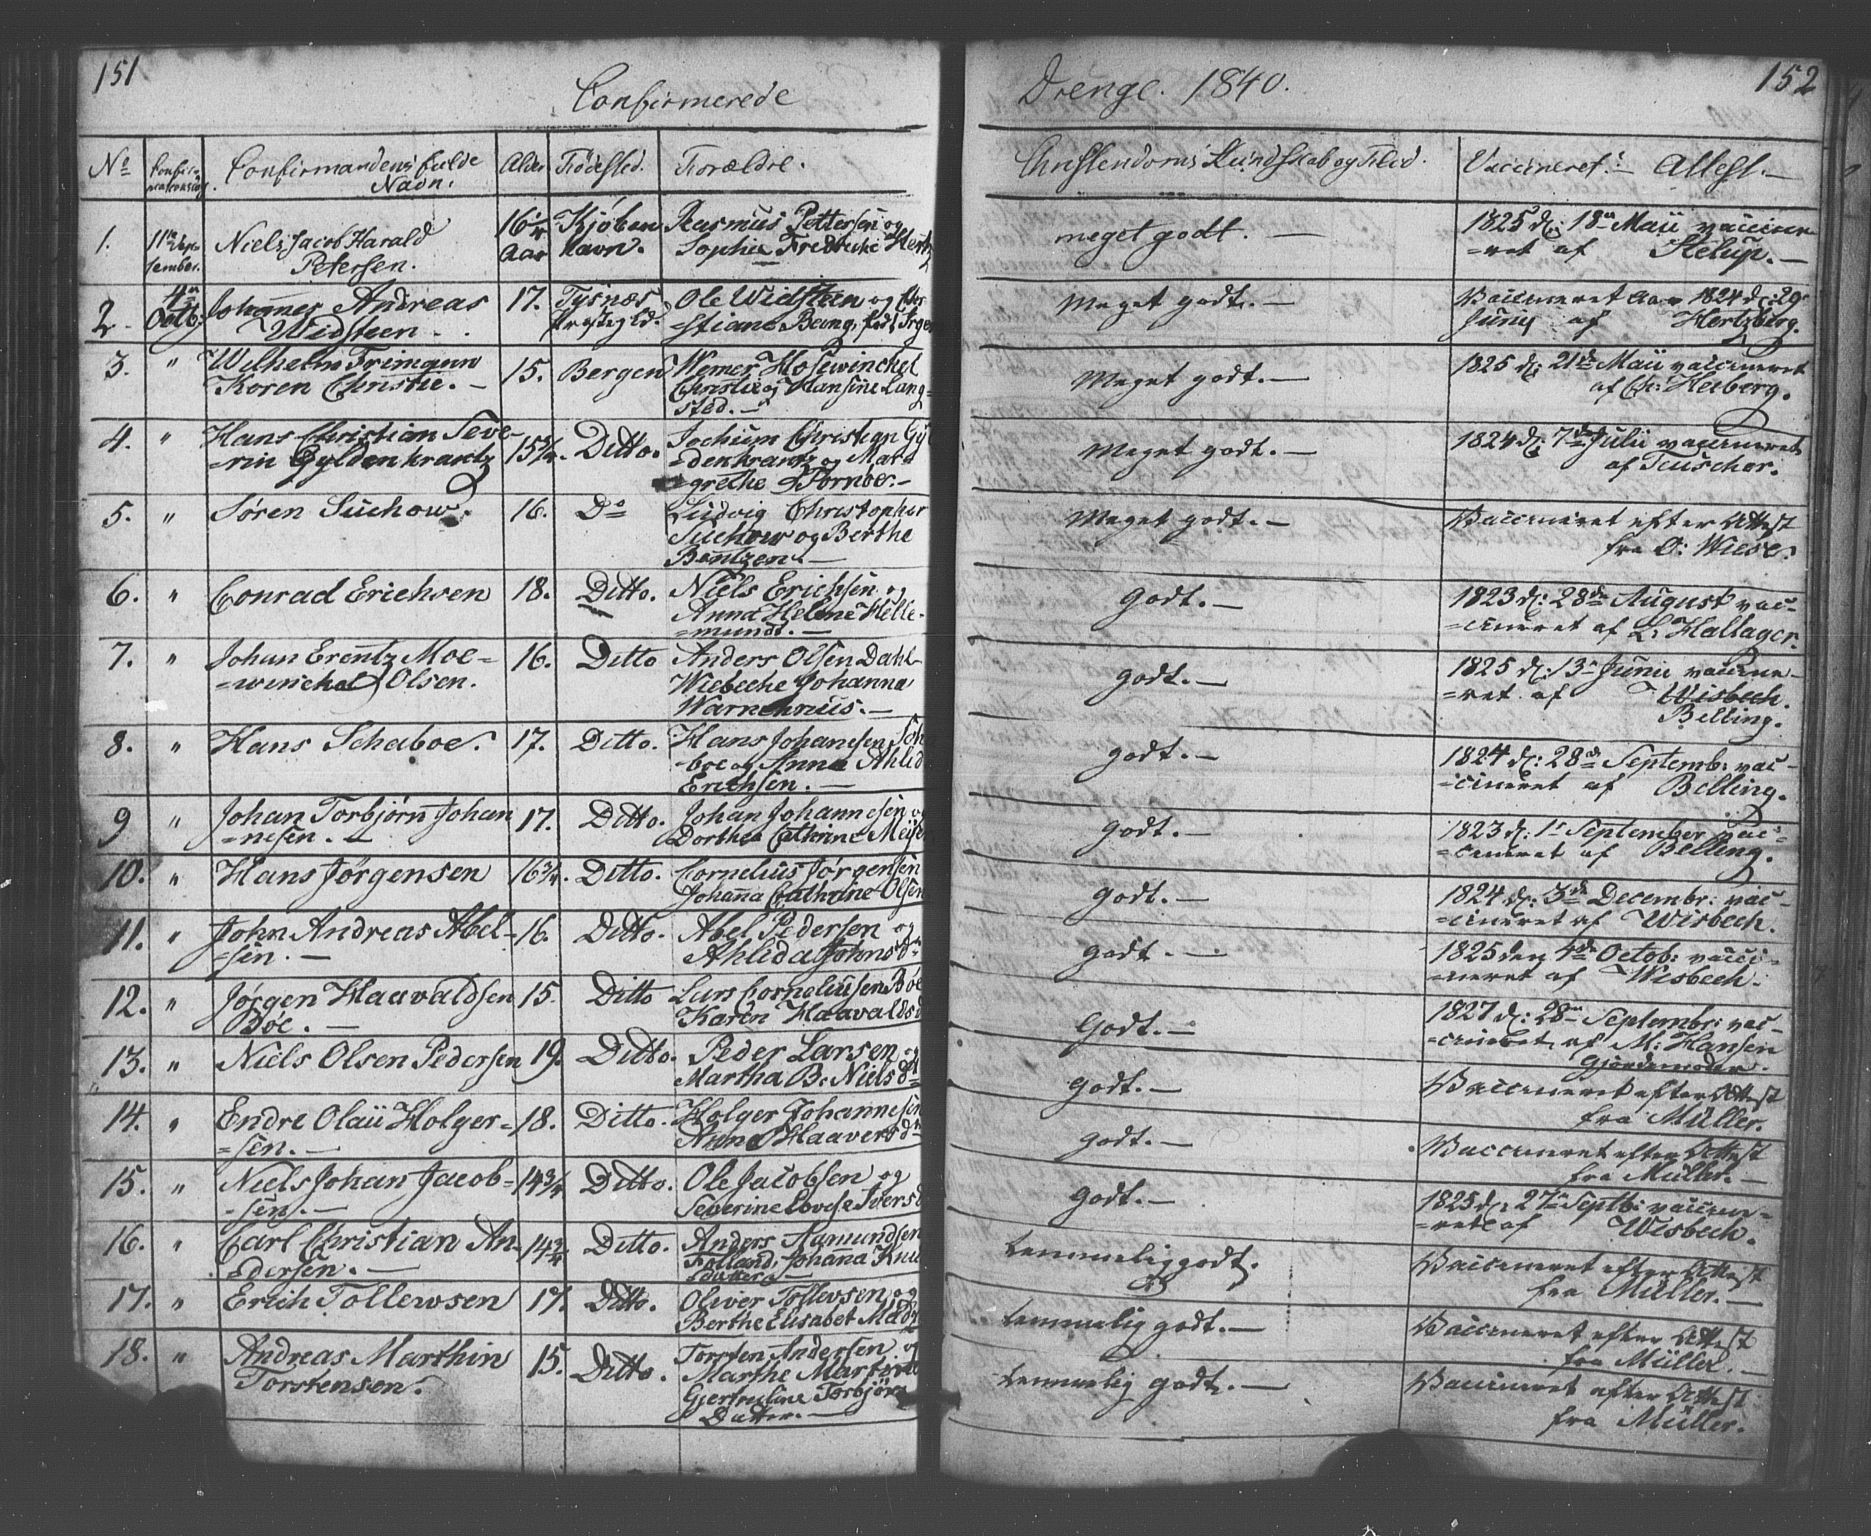 151
Confirmerede
Drenge. 1840.
152
No
Confirmandens fulde
Navn.
Alder
Fødested.
Forældre.
Christendoms Kundskab og Flid.
Vaccineret Attest.
1.
11te Sep-
tember.
Niels Jacob Harald
Petersen.
16
Aar
Kjøben
havn.
Rasmus Pettersen og
Sophie Fredrike Hertz
meget godt. —
1825 d: 18 Maii vaccine
=ret af
2.
4
Octb:
Johannes Andreas
Widsteen.
17.
Tysnæs
Præstegjld.
Ole Widsteen og Chri
stiane Bang,
Meget godt. —
Vaccineret Aar 1824 d: 29
Junij af Hertzberg.
3.
"
Wilhelm Frimann
Koren Christie. —
15.
Bergen
Werner Hosewinckel
Christie og Hansine Lang
sted. —
Meget godt. —
1825 d: 21de Maii vaccineret
af Ch: Heiberg.
4.
"
Hans Christian Seve-
=rin Gyldenkrantz
15 3/4.
Ditto.
Jochum Christian Gyl
=denkrantz og Mar=
=grethe Tornøe. —
Meget godt. —
1824 d: 7de Julii vaccineret
af Teuscher.
5.
"
Søren Suchow.
16.
Do
Ludvig Christopher
Suchow og Berthe
Bentzen. —
Meget godt. —
Vaccineret efter Attest
fra O: Wiese.
6.
"
Conrad Erichsen
18.
Ditto.
Niels Erichsen og
Anna Helene Helle-
=mundt. —
Godt. —
1823 d: 28de August vac-
=cineret af L. Hallager.
7.
"
Johan Erentz Moe=
=winckel Olsen.
16.
Ditto
Anders Olsen Dahl
Wiebeche Johanna
godt. —
1825 d: 13 Junii vaccine-
=ret af Wisbech.
Belling.
8.
"
Hans Schaboe.
17.
Ditto.
Hans Johanesen
boe og Anna Ahlid
Erichsen. —
godt. —
1824 d: 28de Septemb: vac-
=cineret af Belling.
9
"
Johan Torbjørn Johan
=nesen. —
17.
Ditto.
Johan Johannesen og
Dorthea Cathrine Meyer
godt. —
1823 d: 1 September vac=
=cineret af Belling.
10.
"
Hans Jørgensen
16 3/4.
Ditto.
Cornelius Jørgensen
Johanna Cathrine Olsen
godt. —
1824 d: 3de Decembr: vac-
=cineret af Wisbech.
11.
"
John Andreas Abel-
=sen. —
16.
Ditto.
Abel Pedersen og
Ahlida Johnsdr
godt. —
1825 den 4de Octob: vacci-
=neret af Wisbech.
12.
"
Jørgen Haavaldsen
Bøe. —
15.
Ditto
Lars Corneliusen Bøe
Karen Haavaldsd
Godt. —
1827 d: 28 Septembr: vac-
=cineret af M: Hansen
Gjordemoder.
13.
"
Niels Olsen Pedersen
19.
Ditto.
Peder Larsen og
Martha B: Nielsdtr
godt. —
Vaccineret efter Attest
fra Müller.
14.
"
Endre Olaü Holger=
=sen. —
18.
Ditto.
Holger Johannesen
Anna Haaversdr
godt. —
Vaccineret efter Attest
fra Müller. —
15.
"
Niels Johan Jacob-
=sen. —
14 3/4
Ditto.
Ole Jacobsen og
Severine Lovise Iversd
godt. —
1825 d: 27 Septb: vaccine=
=ret af Wisbech.
16.
"
Carl Christian An-
dersen. —
14 3/4
Ditto.
Anders Aamundsen
Folland, Johanna Knud
datter —
temmelig godt.
Vaccineret efter Attest
fra Müller. —
17.
"
Erich Tollewsen
17.
Ditto.
Oliver Tollevsen og
Berthe Elisabet Madz
temmelig godt. —
Vaccineret efter Attest
fra Müller. —
18.
"
Andreas Marthin
Torstensen.
15.
Ditto.
Torsten Andersen og
Marthe Martine
Gjertruline Torbjörns
Datter. —
temmelig godt. —
Vaccineret efter Attest
fra Müller.